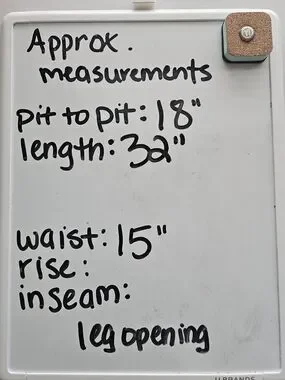 Approx.
measurements
pit to pit: 18"
length: 32"
waist: 15"
rise:
inseam:
leg opening
U BRANDS